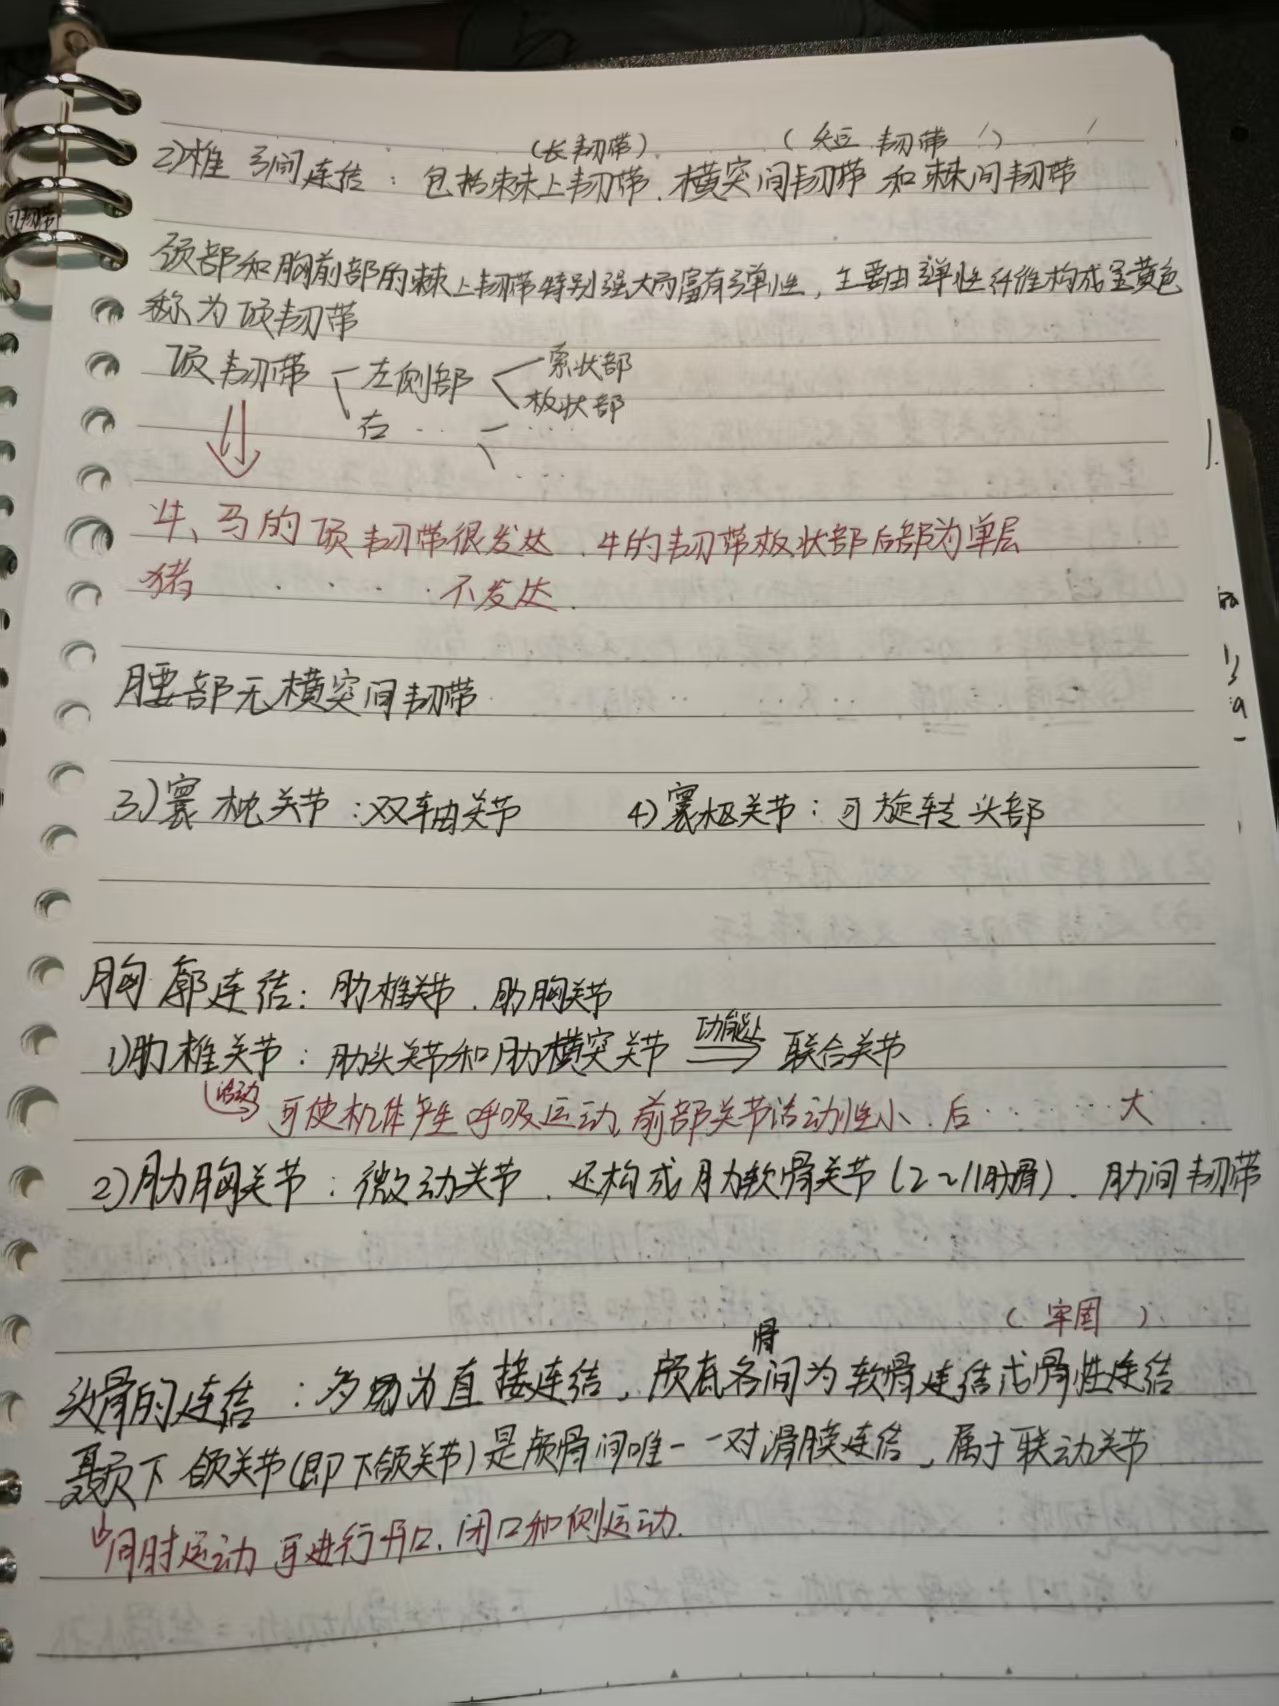 (长韧带) (短韧带)
2)椎弓间连结：包括棘上韧带、横突间韧带和棘间韧带
颈部和胸前部的棘上韧带特别强大而富有弹性，主要由弹性纤维构成呈黄色
称为项韧带
项韧带 左侧部 索状部
板状部
右‥ ‥
牛、马的项韧带很发达、牛的韧带板状部后部为单层
猪 ‥‥不发达.
腰部无横突间韧带
3)寰枕关节：双轴关节 4)寰枢关节：可旋转头部
胸廓连结：肋椎关节、肋胸关节
1)肋椎关节：肋头关节和肋横突关节 功能上⇒ 联合关节
活动 可使机体产生呼吸运动，前部关节活动性小、后‥‥‥大
2)肋胸关节：微动关节、还构成肋软骨关节(2~11肋骨)、肋间韧带
(牢固)
头骨的连结：多数为直接连结，颅底各骨间为软骨连结或骨性连结
颞下颌关节(即下颌关节)是颅骨间唯一一对滑膜连结，属于联动关节
同时运动 可进行开口、闭口和侧运动.